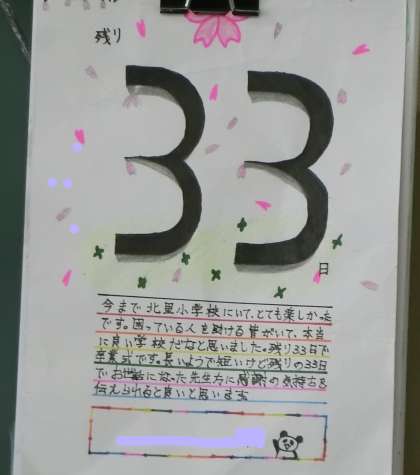 残り
33
日
今まで北里小学校にいて、とても楽しかった
です。困っている人を助ける皆がいて、本当
に良い学校だなと思いました。残り33日で
卒業式です。長いようで短いけど残りの33日
でお世話になった先生方に感謝の気持ちを
伝えられると良いと思います